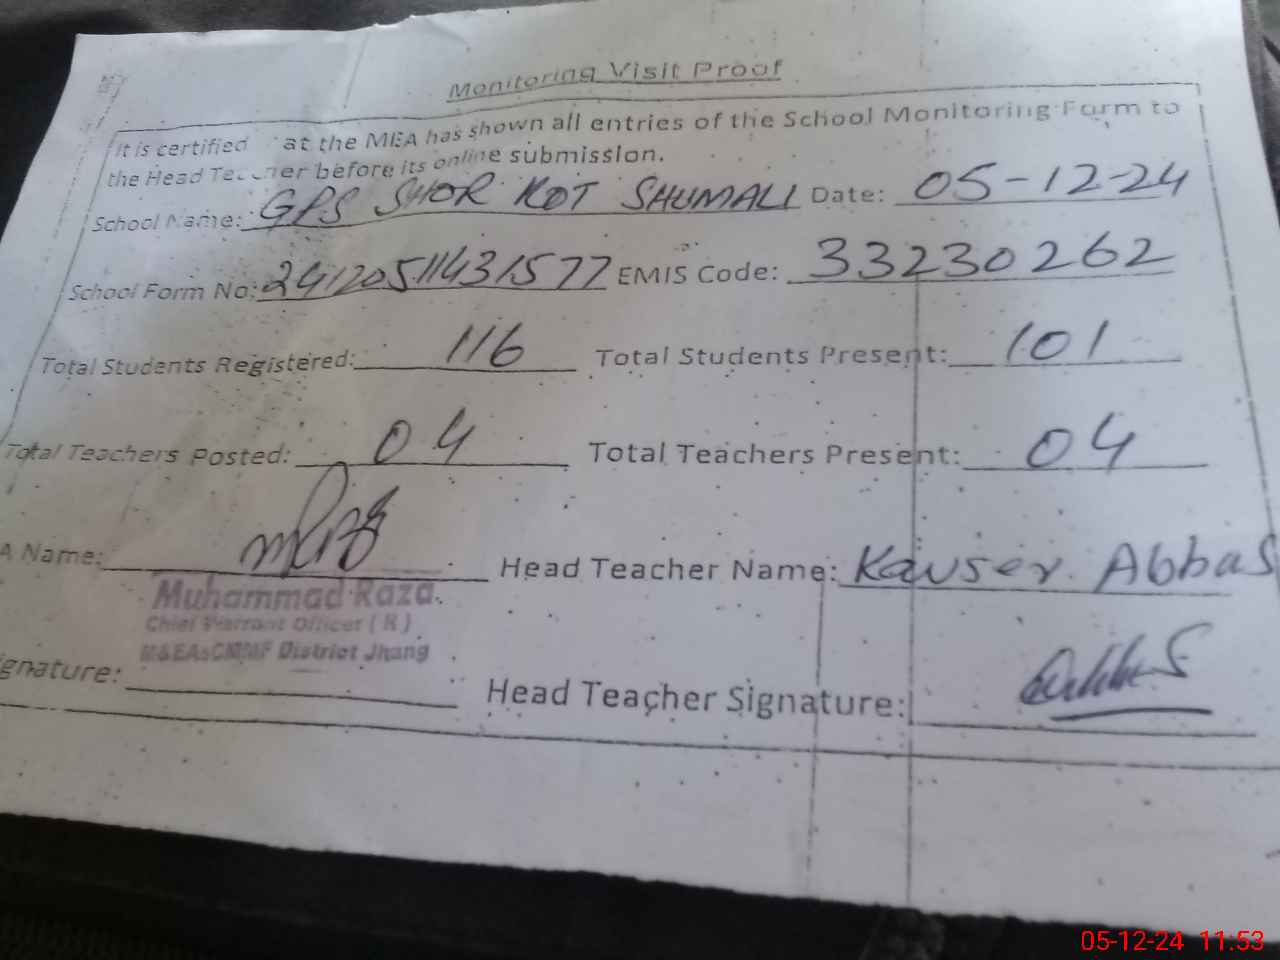 Monitoring Visit Proof
It is certified at the MEA has shown all entries of the School Monitoring Form to
the Head Teacher before its online submission.
School Name: GPS SHOR KOT SHUMALI Date: 05-12-24
School Form No: 24120511431577 EMIS Code: 33230262
Total Students Registered: 116 Total Students Present: 101
Total Teachers Posted: 04 Total Teachers Present: 04
A Name: Head Teacher Name: Kawser Abbas
Muhammad Raza
Chief Warrant Officer (R)
M&EAsCMMF District Jhang
gnature: Head Teacher Signature:
05-12-24 11:53